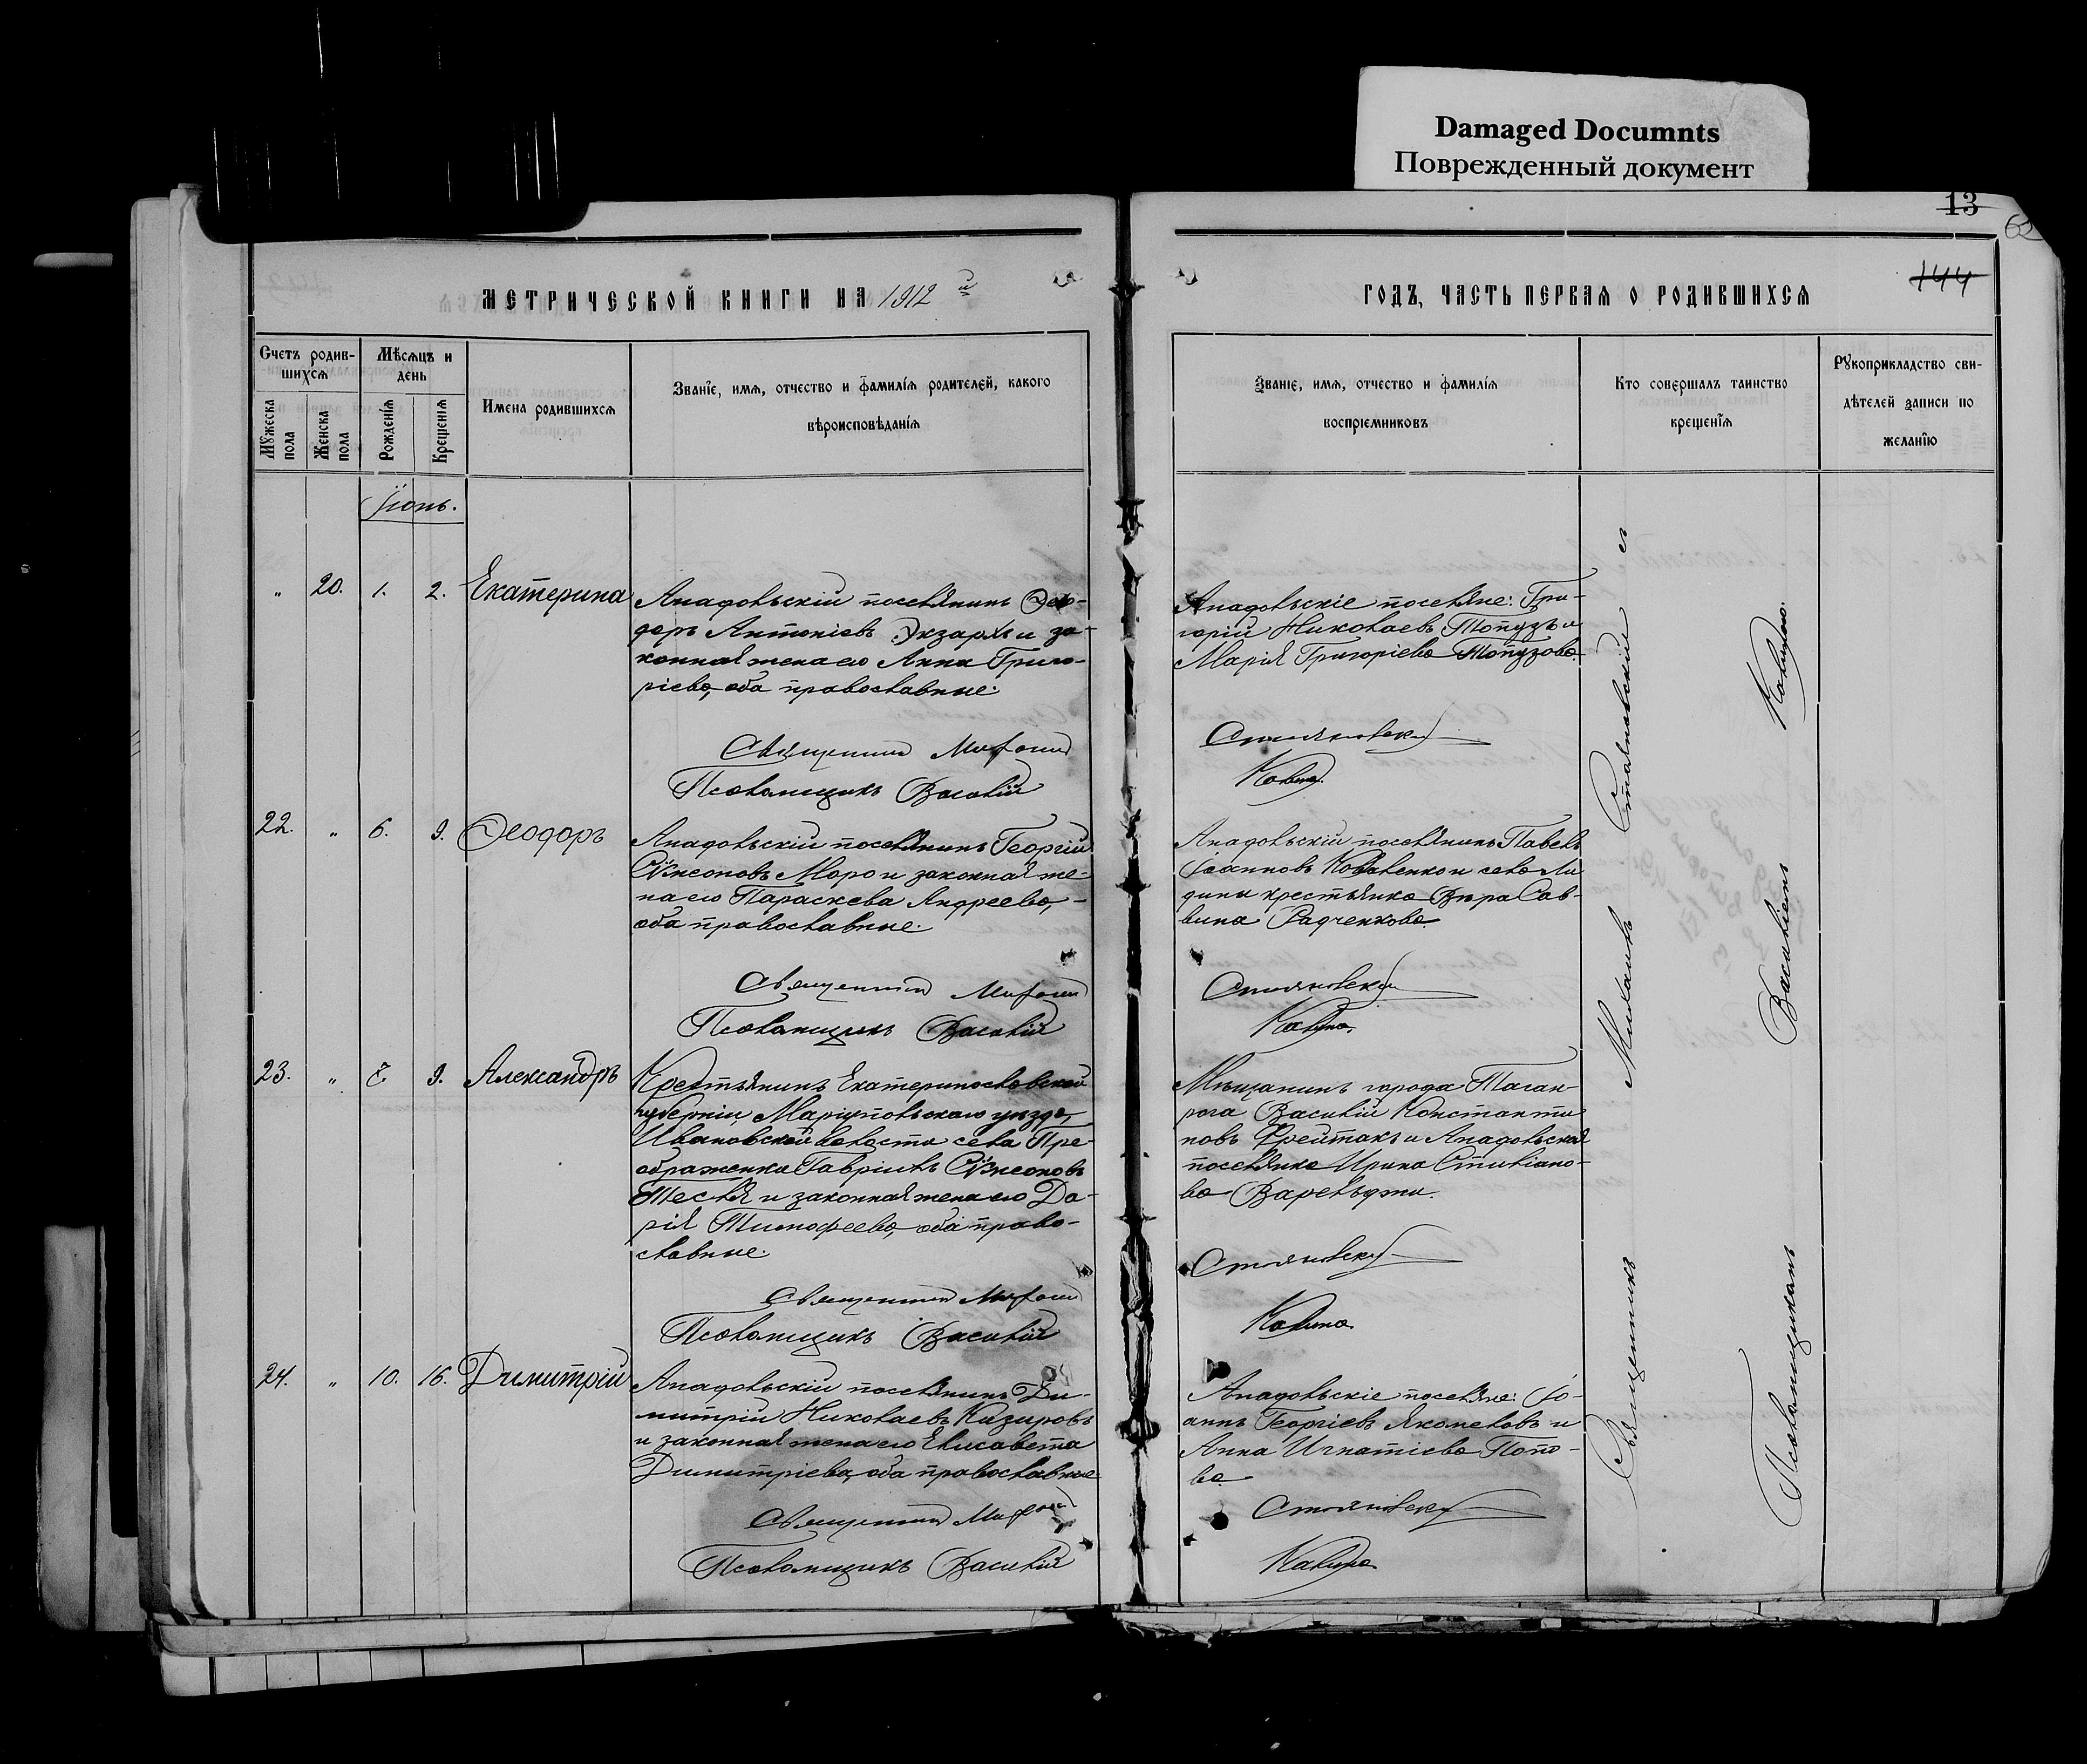 Damaged Documnts
Поврежденный документ
13
62
144
МЕТРИЧЕСКОЙ КНИГИ НА 1912 й
ГОДЪ, ЧАСТЬ ПЕРВАЯ О РОДИВШИХСЯ
Счетъ родив-
шихся
Мужеска пола
Женска пола
Мѣсяцъ и
день
Рожденія
Крещенія
Имена родившихся
Званіе, имя, отчество и фамилія родителей, какого
вѣроисповѣданія
Званіе, имя, отчество и фамилія
воспріемниковъ
Кто совершалъ таинство
крещенія
Рукоприкладство сви-
дѣтелей записи по
желанію
Іюнь.
" 20. 1. 2. Екатерина
Анадольскій поселянинъ Ѳео-
доръ Антоніевъ Экзархъ и за-
конная жена его Анна Григо-
ріева, оба православные.
Священникъ Михаилъ
Псаломщикъ Василій
Анадольскіе поселяне: Гри-
горій Николаевъ Топузъ и
Марія Григоріева Топузова.
Стояновскій
Калина.
22. " 6. 9. Ѳеодоръ
Анадольскій поселянинъ Георгій
Сѵмеоновъ Моро и законная же-
на его Параскева Андреева,
оба православные.
Священникъ Михаилъ
Псаломщикъ Василій
Анадольскій поселянинъ Павелъ
Іоанновъ Коваленко и села Ма
дины крестьянка Вѣра Сав-
вина Радченкова.
Стояновскій
Калина.
23. " 9. Александръ
Крестьянинъ Екатеринославской
губерніи, Маріупольскаго уѣзда,
Ивановской волости села Пре-
ображенка Гавріилъ Сѵмеоновъ
Тесля и законная жена его Да-
рія Тимофеева, оба право-
славные.
Священникъ Михаилъ
Псаломщикъ Василій
Мѣщанинъ города Таган-
рога Василій Константи
новъ Фрейтакъ и Анадольская
поселянка Ирина Стиліано-
ва Варельджи.
Стояновскій
Калина.
24. " 10. 16. Димитрій
Анадольскій поселянинъ Ди-
митрій Николаевъ Кизировъ
и законная жена его Елисавета
Димитріева, оба православные
Священникъ Михаилъ
Псаломщикъ Василій
Анадольскіе поселяне: Іо-
аннъ Георгіевъ Якомеловъ и
Анна Игнатіева Попо-
ва.
Стояновскій
Калина.
Священникъ Михаилъ Стояновскій съ
Псаломщикомъ Василіемъ Калиною.